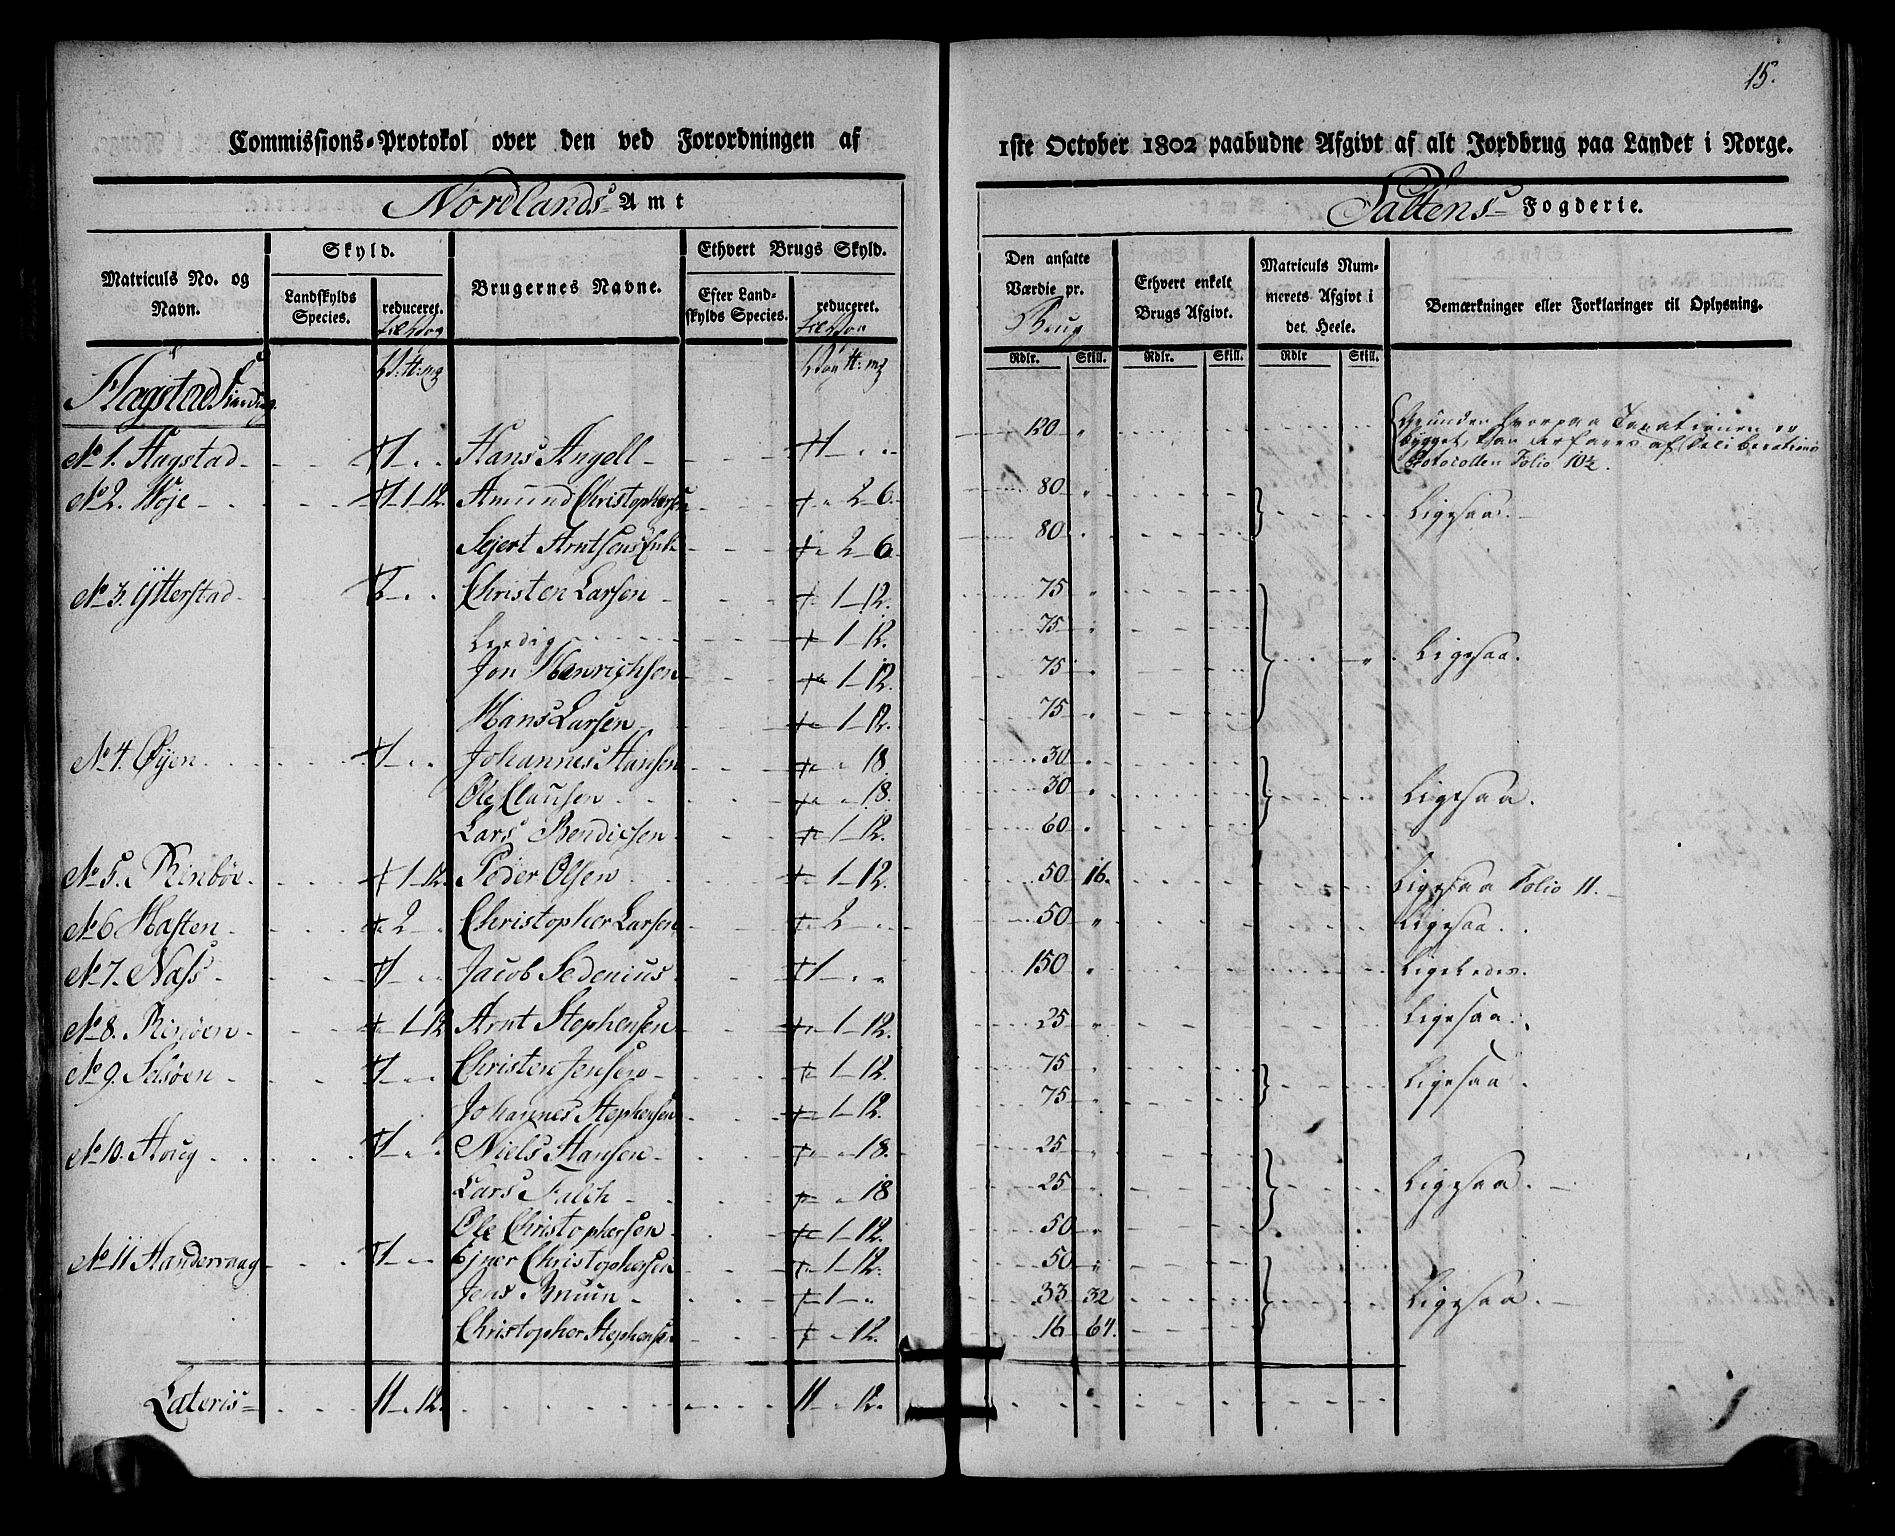 15.
Commissions-Protokol over den ved Forordningen af 1ste October 1802 paabudne Afgivt af alt Jordbrug paa Landet i Norge.
Nordlands Amt
Saltens Fogderie.
Matriculs No. og Navn.
Skyld.
Landskylds Species.
reduceret.
Brugernes Navne.
Ethvert Brugs Skyld.
Efter Landskylds Species.
reduceret.
Den ansatte Værdie pr.
Ethvert enkelt Brugs Afgivt.
Matriculs Nummerets Afgivt i det Heele.
Bemærkninger eller Forklaringer til Oplysning.
Rdlr. Skill. Rdlr. Skill. Rdlr Skill.
Hagstad
No 1. Hagstad 1 Hans Angell 1 120 Grunden hvorpaa Taxationen er bygget, kan erfares af Deliberations Protocollen Folio 10½.
No 2. Woje 1-1-12. Amund Christophersen 2-6. 80 Ligesaa.
Sejert Arntsens Enke 2-6. 80
No 3. Ytterstad 2 Christen Larsen 1-12. 75 Ligesaa.
Leedig 1-12. 75
Jon Henrichsen 1-12. 75
Hans Larsen 1-12. 75
No 4. Øyen 1 Johannes Hansen 18 30 Ligesaa.
Ole Clausen 18. 30
Lars Bendicsen 1-12. 60
No 5. Rinbøe 1-12. Peder Olsen 1-12. 50 16. Ligesaa Folio 11.
No 6 Hasten 2 Christopher Larsen 2 50 Ligesaa.
No 7. Næss 1 Jacob Sedenius 1 150 Ligeledes.
No 8. Rinøen 1-12 Arnt Stephensen 1-12. 25 Ligesaa.
No 9. Selsøen 1 Christen Jensen 1-12. 75 Ligesaa.
Johannes Stephensen 1-12. 75
No 10. Houg 1 Niels Hansen 18. 25 Ligesaa.
Lars Falch 18 25
Ole Christophersen 1-12. 50
No 11 Handervaag 1 Ejner Christophersen 1-12. 50 Ligesaa.
Jens Bruun 1 33 32
Christopher Stephensen 12. 16 64.
Lateris 11 12. 11 12.